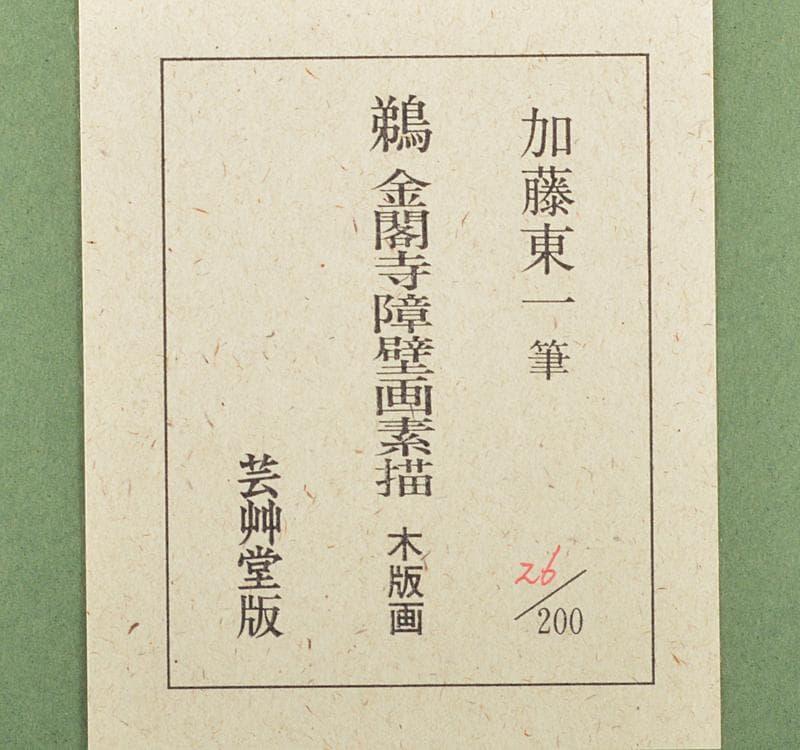 加藤東一 筆
26/200
鵜 金閣寺障壁画素描 木版画
芸艸堂版